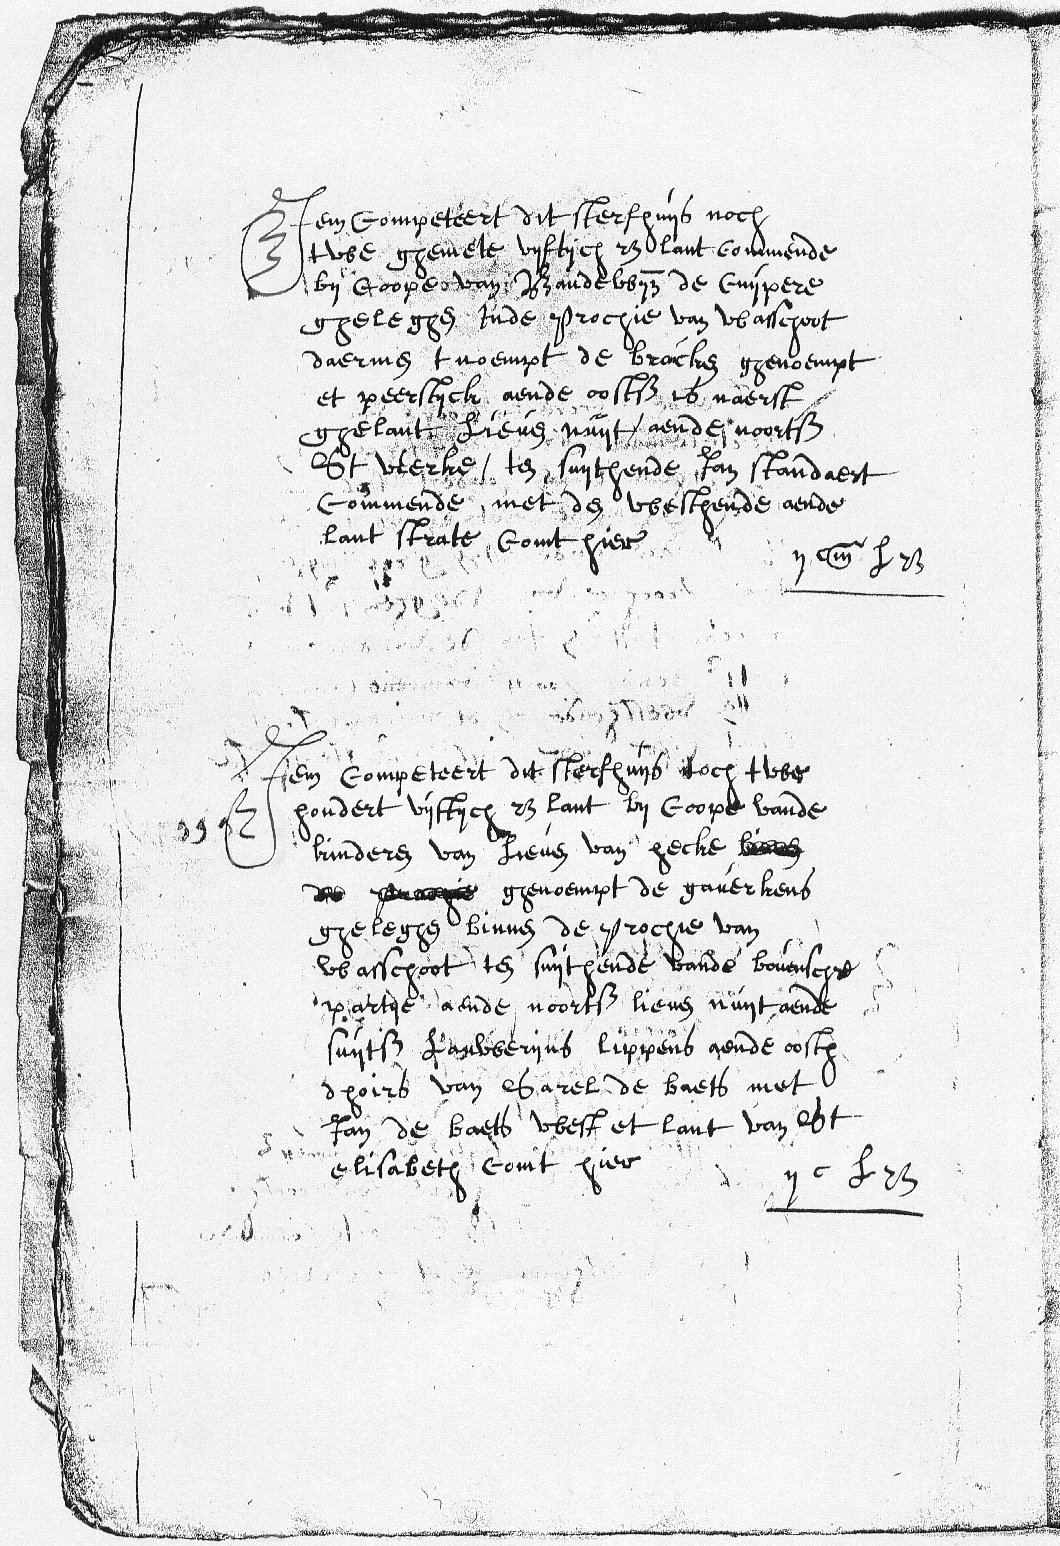 Item Competeert dit sterfhuijs noch
twee ghemete vijftich R lant Commende
bij Coope van Baudewijn de Cuijpere
gheleghen Inde prochie van waesschoot
daermen t noempt de broucken ghenoempt
et peerstijck aende oostz is naerst
ghelant Lieven nuijt / aende noortz
St vierke / ten suijthende Jan standaert
Commende met den westhende aende
lant strate Comt hier
ij c L R
Item Competeert dit sterfhuijs noch twee
hondert vijftich R lant bij Coope vande
kinderen van Lieven van hecke
ghenoempt de gaverkens
gheleghen binnen de prochie van
waesschoot ten suijthende vande bovenschr
partije aende noortz lieven nuijt aende
suijtz Lauwerijns lippens aende oosth
dhoirs van Carel de baets met
Jan de baets west et lant van St
elisabeth Comt hier
ij c L R